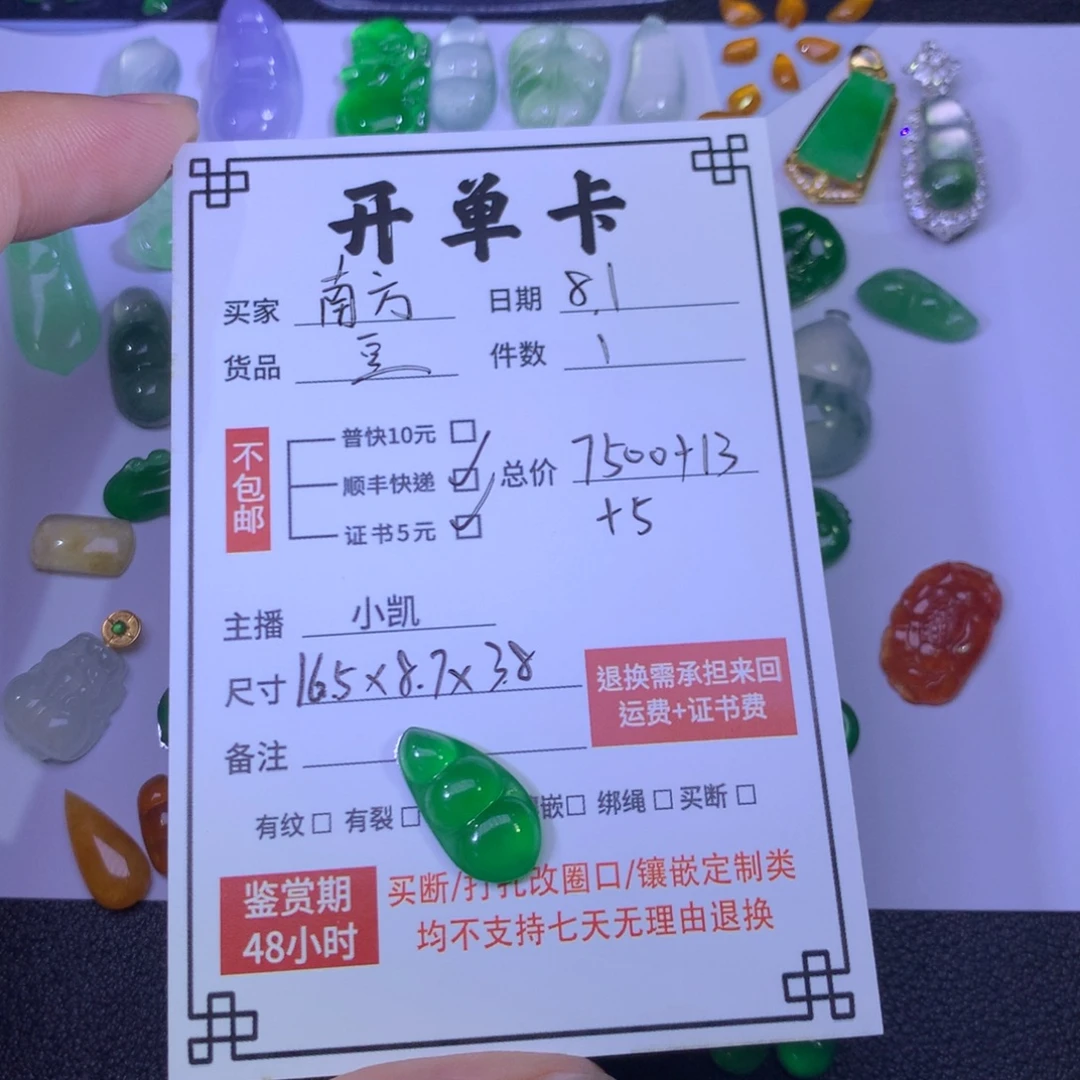 开单卡
买家 南方 日期 8.1
货品 豆 件数 1
不包邮
普快10元 □
顺丰快递 ☑ 总价 7500+13
证书5元 ☑ +5
主播 小凯
尺寸 16.5×8.7×3.8
退换需承担来回
运费+证书费
备注
有纹□ 有裂□ 嵌□ 绑绳□ 买断□
鉴赏期
48小时
买断/打孔改圈口/镶嵌定制类
均不支持七天无理由退换